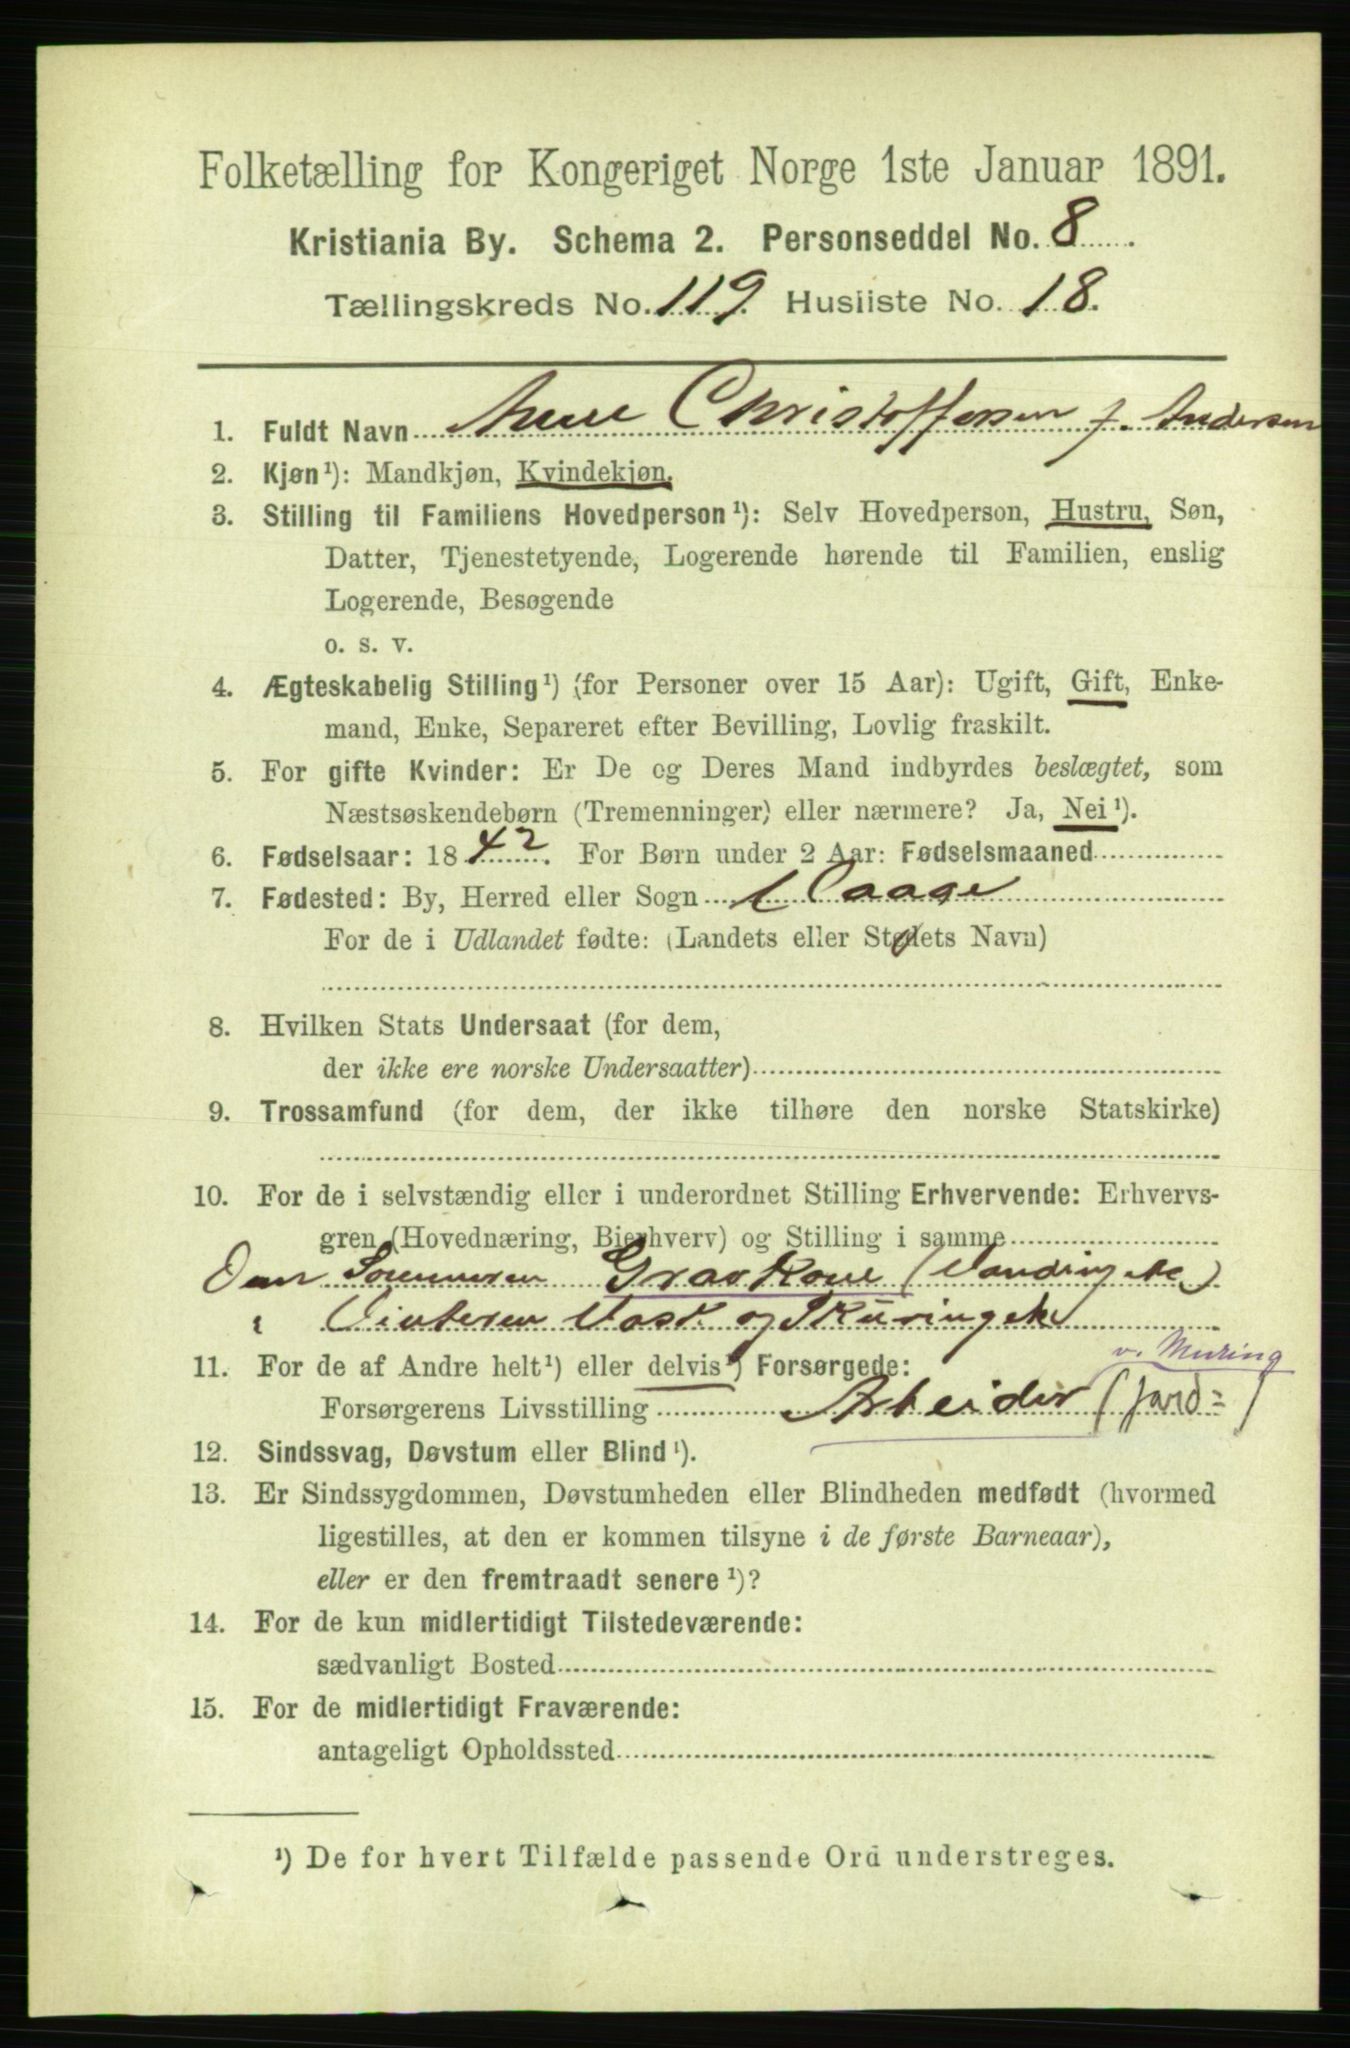 Folketælling for Kongeriget Norge 1ste Januar 1891.
Kristiania By. Schema 2. Personseddel No. 8
Tællingskreds No. 119 Husliste No. 18.
1. Fuldt Navn Anne Christoffersen f. Andersen
2. Kjøn¹): Mandkjøn, Kvindekjøn.
3. Stilling til Familiens Hovedperson¹): Selv Hovedperson, Hustru, Søn,
Datter, Tjenestetyende, Logerende hørende til Familien, enslig
Logerende, Besøgende
o. s. v.
4. Ægteskabelig Stilling¹) (for Personer over 15 Aar): Ugift, Gift, Enke-
mand, Enke, Separeret efter Bevilling, Lovlig fraskilt.
5. For gifte Kvinder: Er De og Deres Mand indbyrdes beslægtet, som
Næstsøskendebørn (Tremenninger) eller nærmere? Ja, Nei¹).
6. Fødselsaar: 1842. For Børn under 2 Aar: Fødselsmaaned
7. Fødested: By, Herred eller Sogn Vaage
For de i Udlandet fødte: (Landets eller Stedets Navn)
8. Hvilken Stats Undersaat (for dem,
der ikke ere norske Undersaatter)
9. Trossamfund (for dem, der ikke tilhøre den norske Statskirke)
10. For de i selvstændig eller i underordnet Stilling Erhvervende: Erhvervs-
gren (Hovednæring, Bierhverv) og Stilling i samme
Om Sommeren Gravkone (Vanding etc)
" Vinteren Vask og Skuring etc
11. For de af Andre helt¹) eller delvis¹) Forsørgede:
v. Muring
Forsørgerens Livsstilling Arbeider (Jord=)
12. Sindssvag, Døvstum eller Blind¹).
13. Er Sindssygdommen, Døvstumheden eller Blindheden medfødt (hvormed
ligestilles, at den er kommen tilsyne i de første Barneaar),
eller er den fremtraadt senere¹)?
14. For de kun midlertidigt Tilstedeværende:
sædvanligt Bosted
15. For de midlertidigt Fraværende:
antageligt Opholdssted
¹) De for hvert Tilfælde passende Ord understreges.